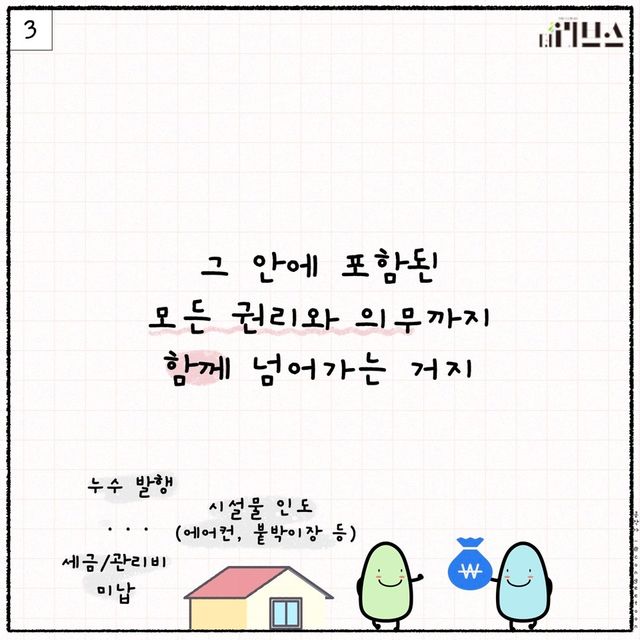 3
더케이브스
그 안에 포함된
모든 권리와 의무까지
함께 넘어가는 거지
누수 발행
시설물 인도
...
(에어컨, 붙박이장 등)
세금/관리비
미납
₩